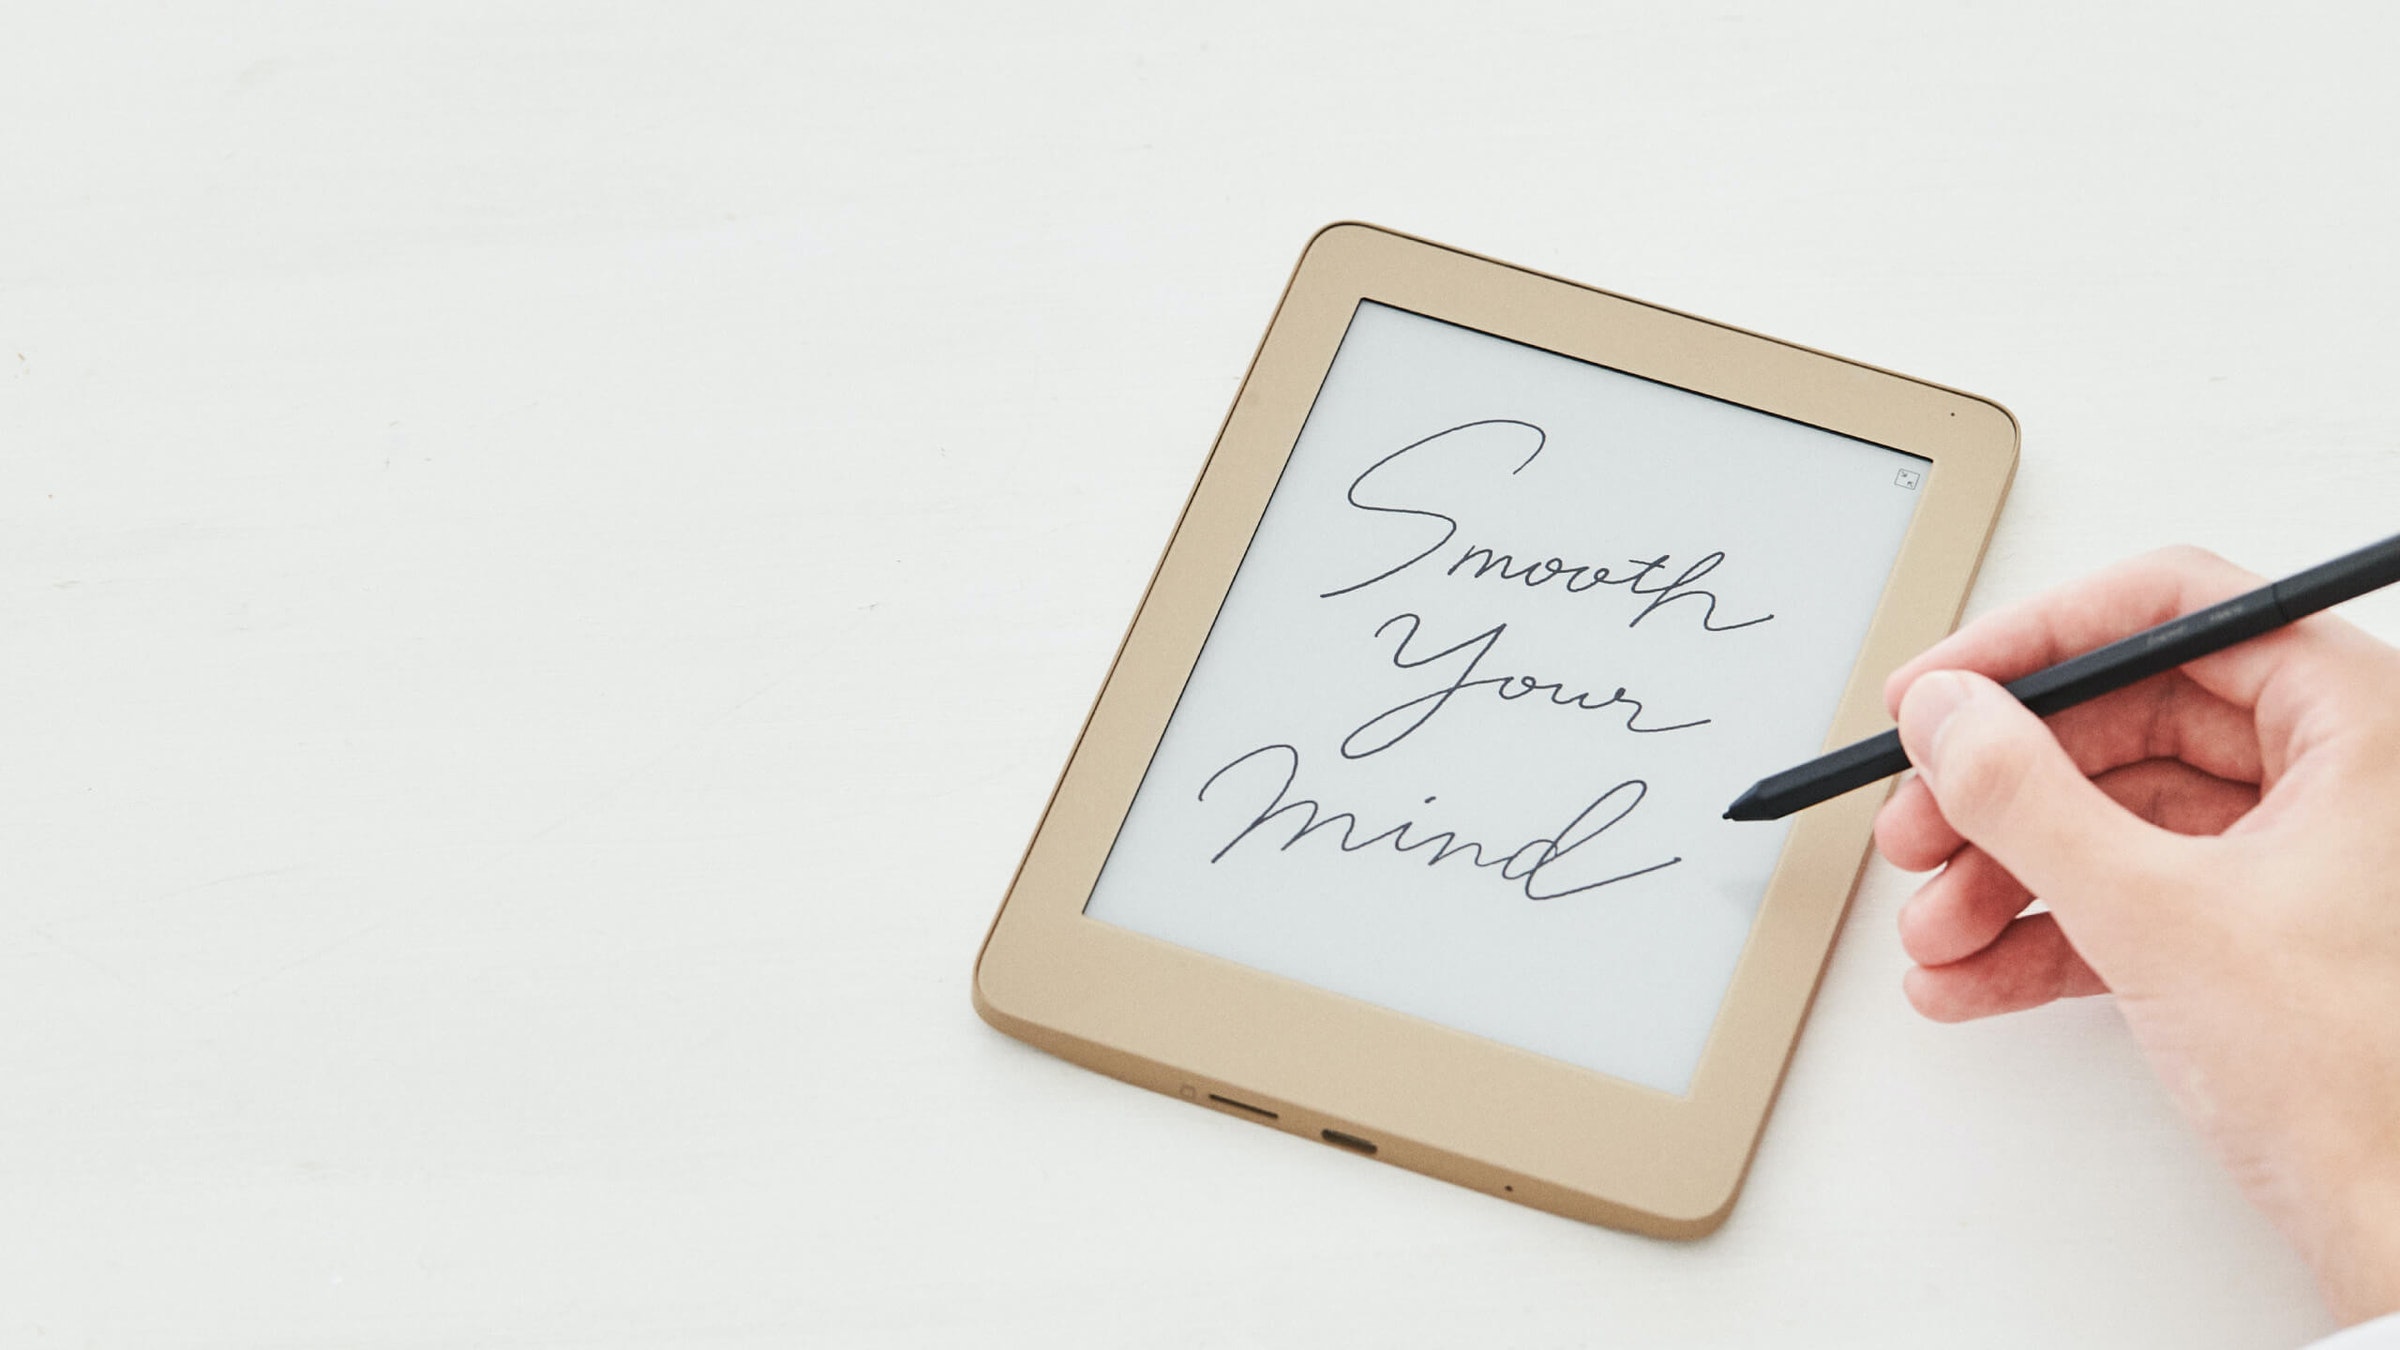 Smooth
Your
Mind